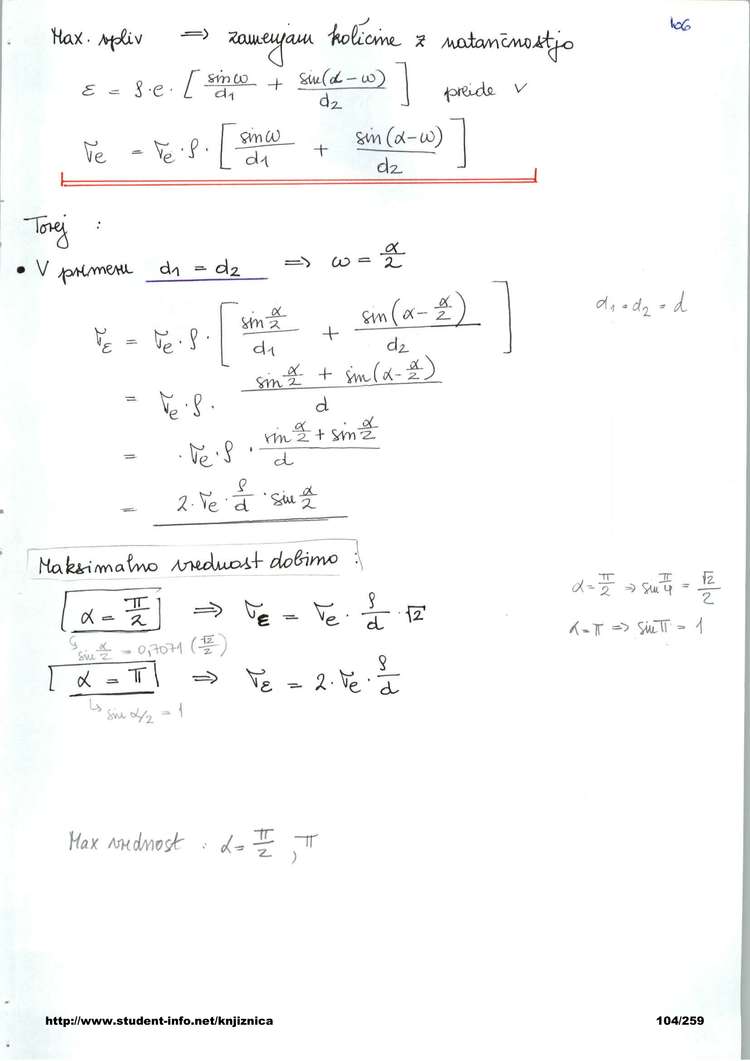 106
Max. vpliv ⇒ zamenjam količine z natančnostjo
ε = ρ·e·[ sinω/d1 + sin(α-ω)/d2 ] preide v
σe = σe·ρ·[ sinω/d1 + sin(α-ω)/d2 ]
Torej :
• V primeru d1 = d2 ⇒ ω = α/2
d1 = d2 = d
σε = σe·ρ·[ sin α/2 / d1 + sin(α - α/2) / d2 ]
= σe·ρ· (sin α/2 + sin(α - α/2)) / d
= ·σe·ρ · (sin α/2 + sin α/2) / d
= 2·σe· ρ/d · sin α/2
Maksimalno vrednost dobimo :
α = π/2 ⇒ sin π/4 = √2/2
α = π/2 ⇒ σε = σe · ρ/d · √2
↳ sin α/2 = 0,7071 (√2/2)
α = π ⇒ sin π = 1
α = π ⇒ σε = 2·σe· ρ/d
↳ sin α/2 = 1
Max vrednost : α = π/2 , π
http://www.student-info.net/knjiznica
104/259